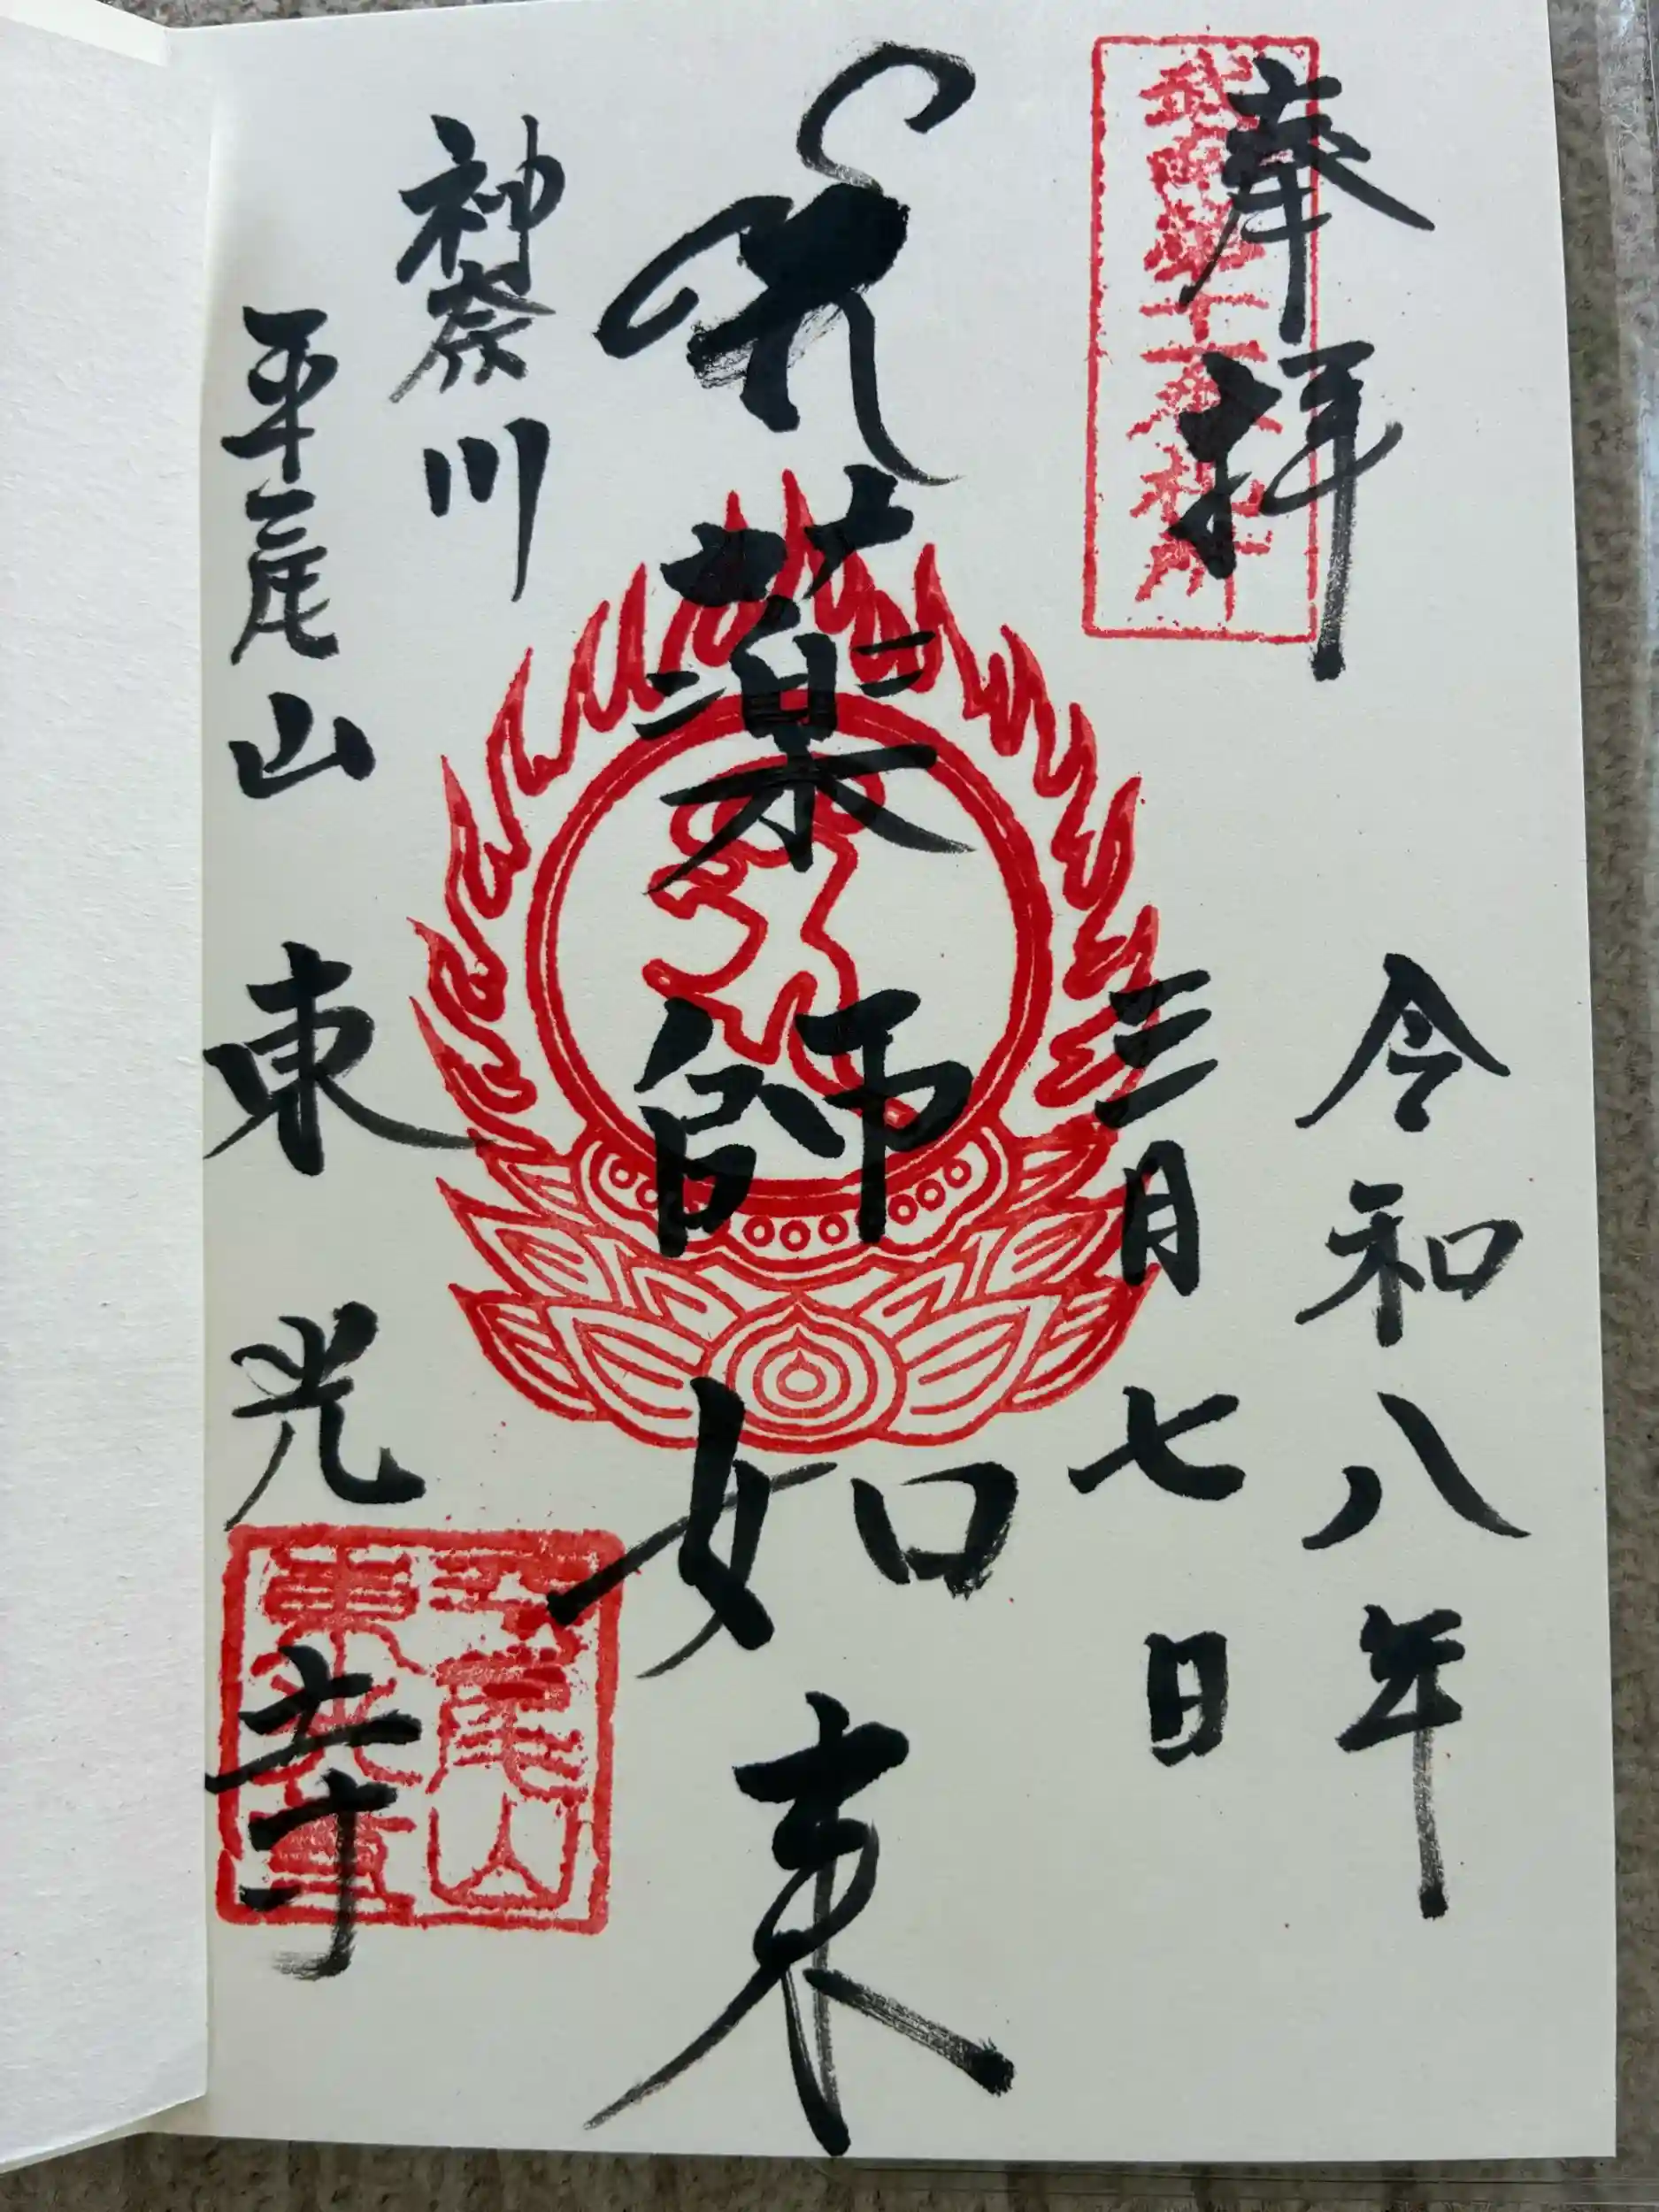 奉拝
十二番札所
令和八年
三月七日
薬師如来
神奈川
平尾山 東光寺
平尾山
東光寺